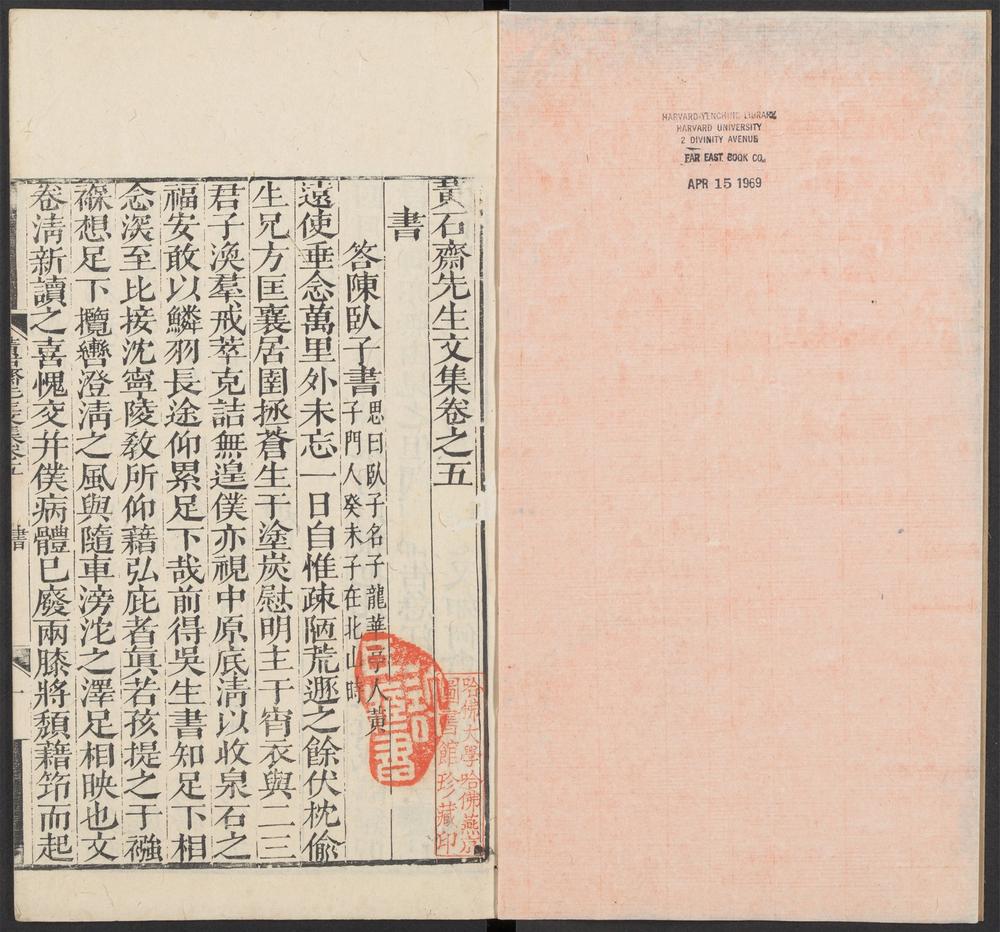 黃石齋先生文集卷之五
書
答陳臥子書思曰臥子名子龍華亭人黃
子門人癸未子在北山時
遠使垂念萬里外未忘一日自惟疎陋荒遯之餘伏枕偷
生兄方匡襄居圉拯蒼生于塗炭慰明主于宵衣與二三
君子渙羣戒萃克詰無遑僕亦視中原底淸以收泉石之
福安敢以鱗羽長途仰累足下哉前得吳生書知足下相
念深至比接沈寧陵敎所仰藉弘庇者眞若孩提之于襁
褓想足下攬轡澄淸之風與隨車滂沱之澤足相映也文
卷淸新讀之喜愧交幷僕病體已廢兩膝將頽藉筇而起
書
哈佛大學哈佛燕京
圖書館珍藏印
HARVARD-YENCHING LIBRARY
HARVARD UNIVERSITY
2 DIVINITY AVENUE
FAR EAST BOOK CO.
APR 15 1969